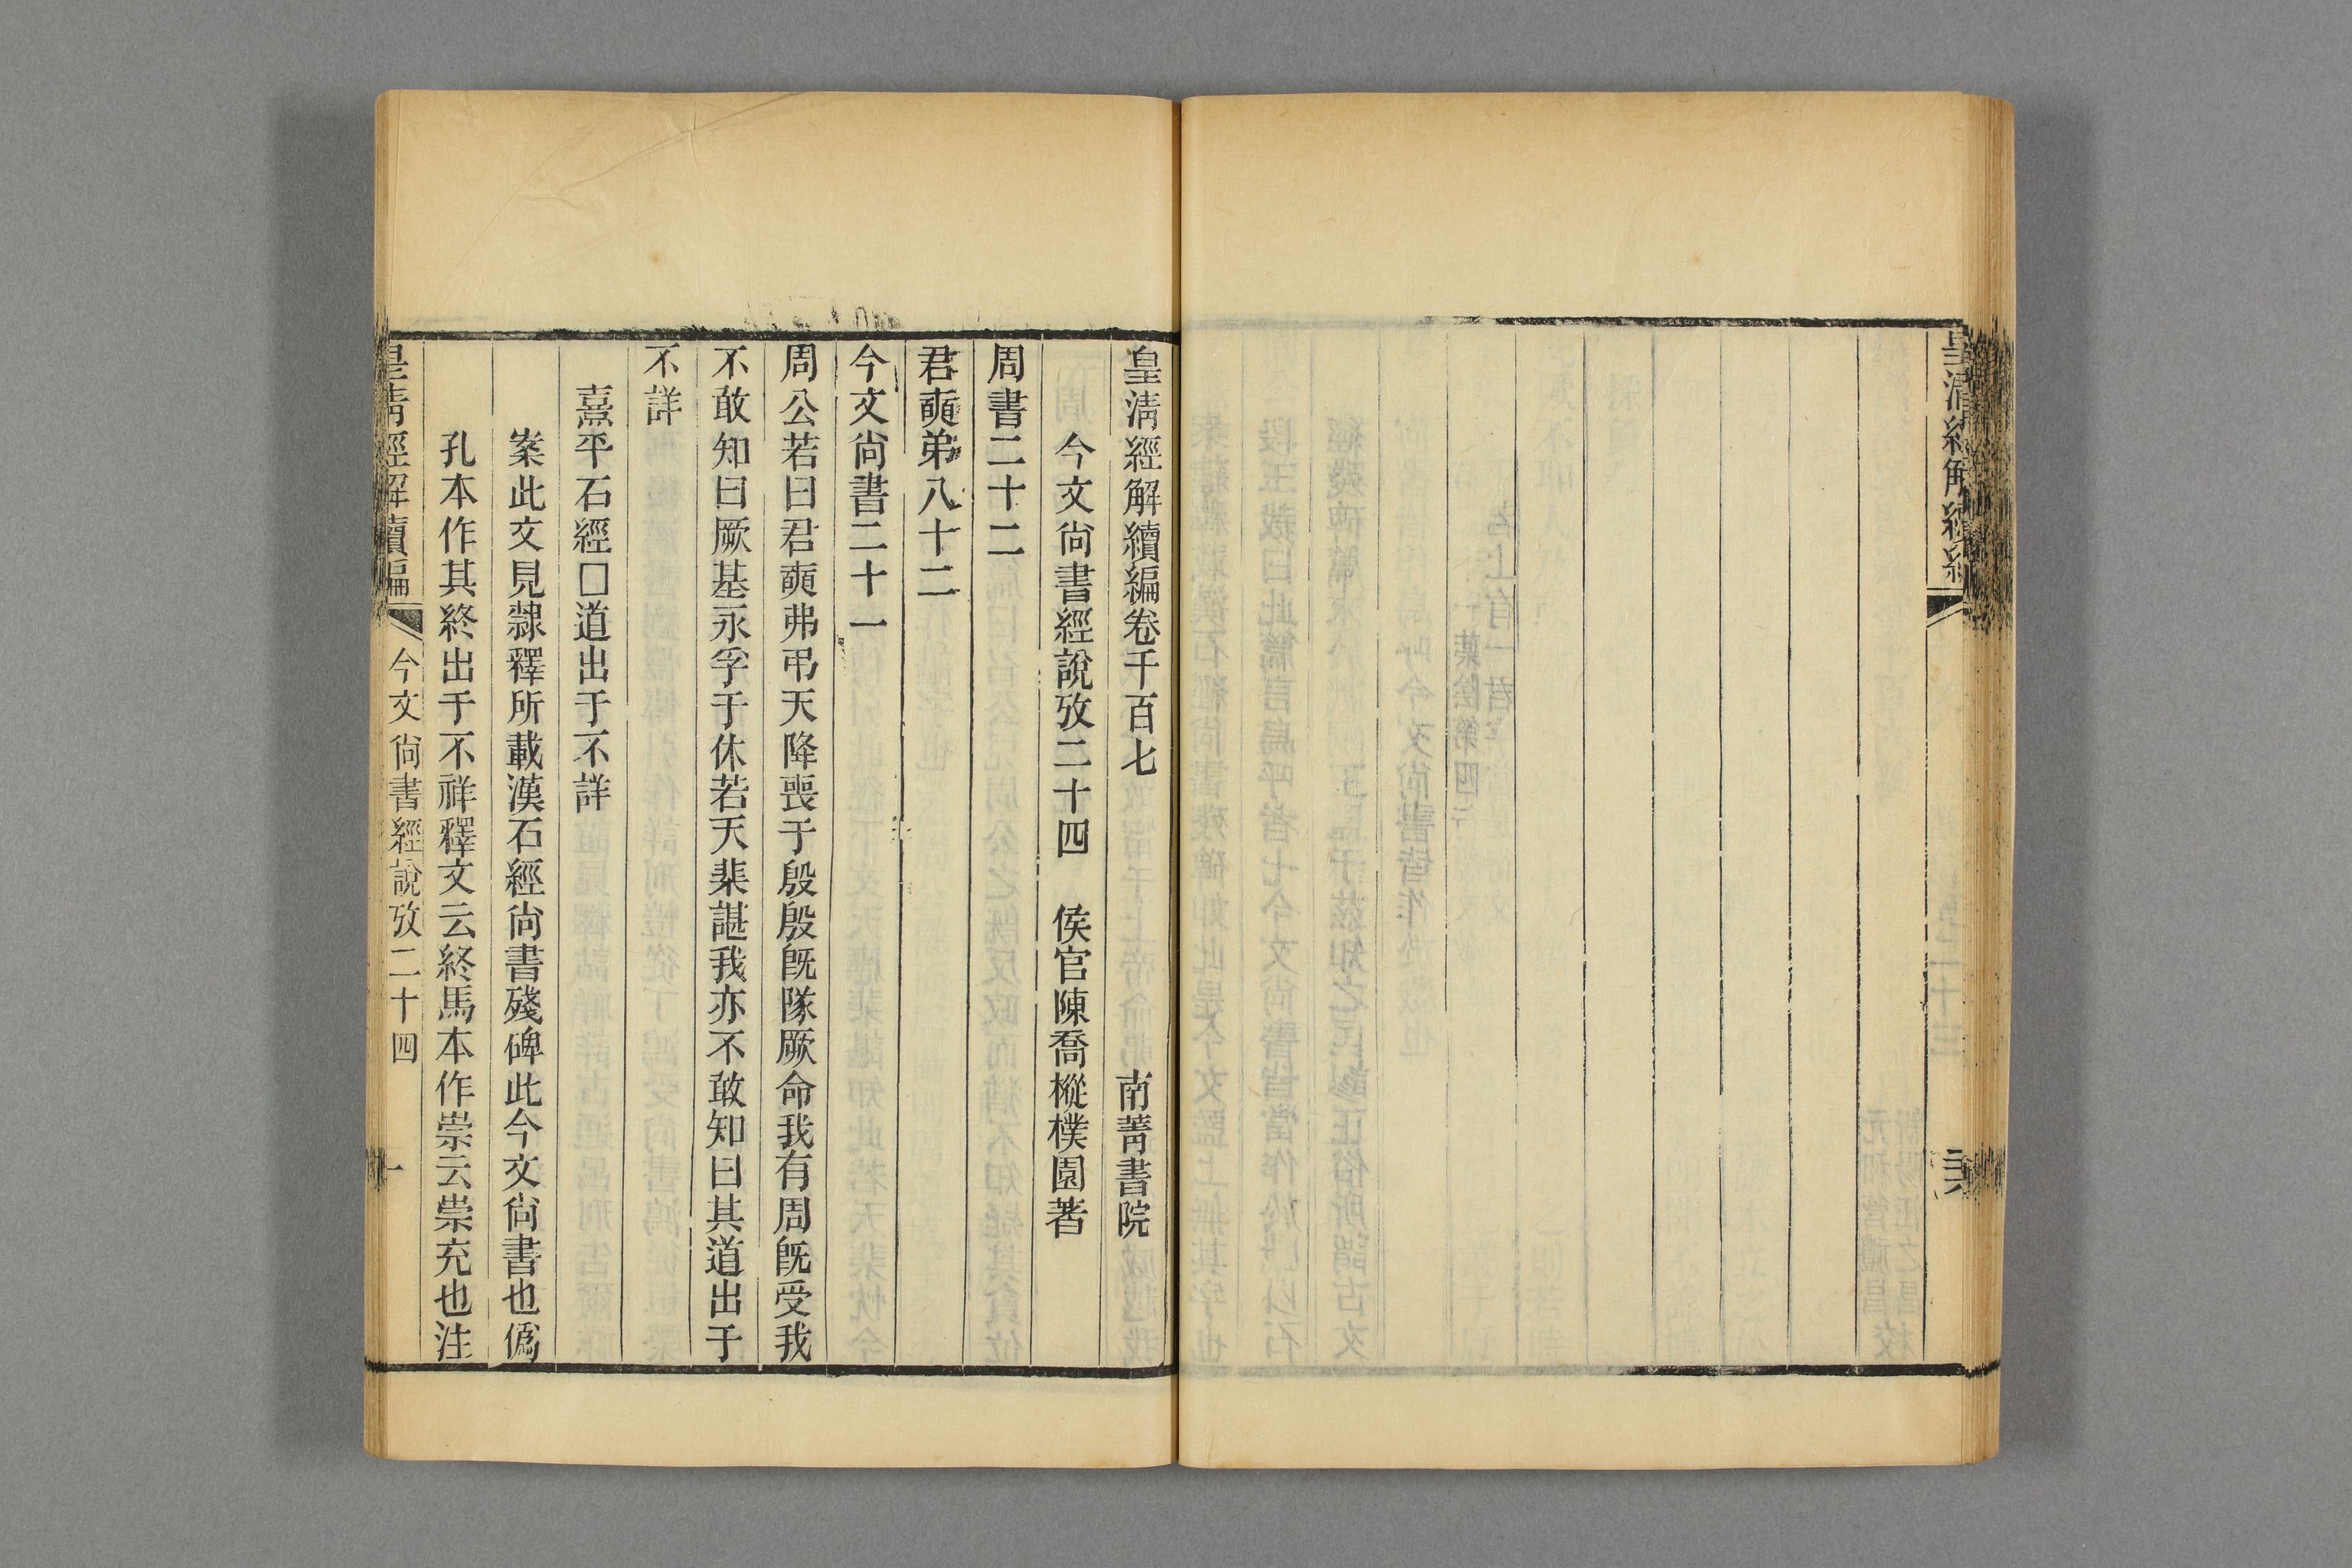 皇清經解續編卷千百七　南菁書院
今文尚書經說攷二十四　侯官陳喬樅樸園著
周書二十二
君奭弟八十二
今文尚書二十一
周公若曰君奭弗弔天降喪于殷殷旣隊厥命我有周旣受我
不敢知曰厥基永孚于休若天棐諶我亦不敢知曰其道出于
不詳
熹平石經□道出于不詳
案此文見隸釋所載漢石經尚書殘碑此今文尚書也僞
孔本作其終出于不祥釋文云終馬本作崇云崇充也注
皇清經解續編　今文尚書經說攷二十四　一